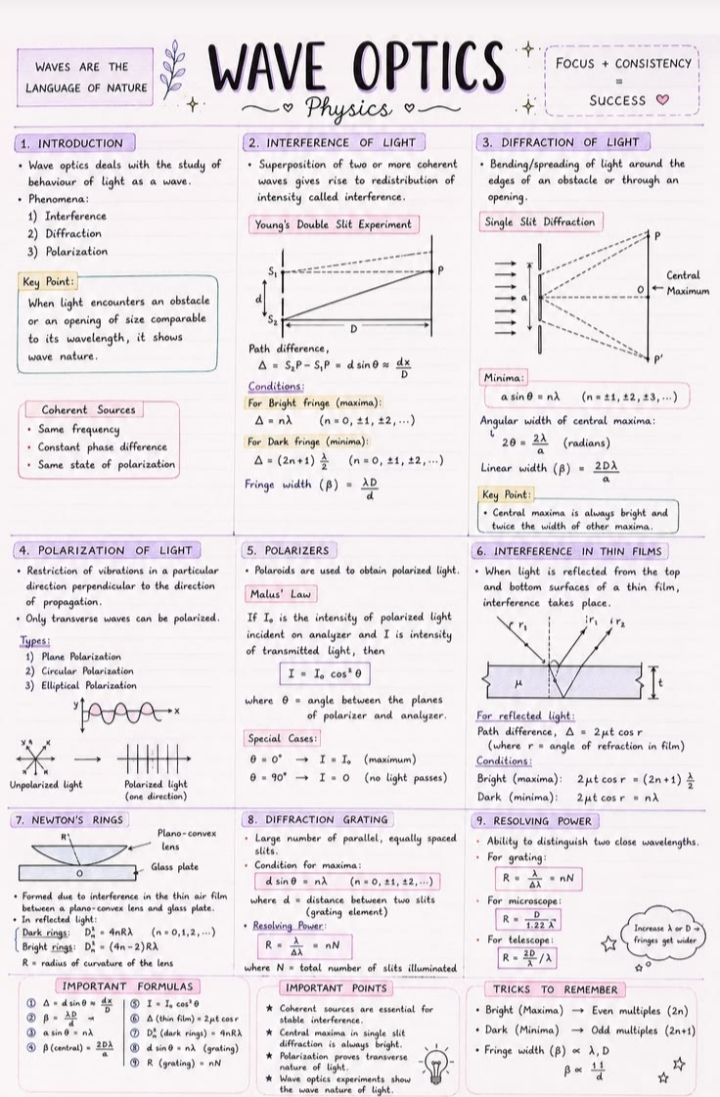 WAVES ARE THE
LANGUAGE OF NATURE
WAVE OPTICS
Physics
FOCUS + CONSISTENCY
=
SUCCESS
1. INTRODUCTION
• Wave optics deals with the study of
behaviour of light as a wave.
• Phenomena:
1) Interference
2) Diffraction
3) Polarization
Key Point:
When light encounters an obstacle
or an opening of size comparable
to its wavelength, it shows
wave nature.
Coherent Sources
• Same frequency
• Constant phase difference
• Same state of polarization
2. INTERFERENCE OF LIGHT
• Superposition of two or more coherent
waves gives rise to redistribution of
intensity called interference.
Young's Double Slit Experiment
S₁
P
d
S₂
D
Path difference,
Δ = S₂P – S₁P = d sin θ ≈ dx/D
Conditions:
For Bright fringe (maxima):
Δ = nλ (n = 0, ±1, ±2,...)
For Dark fringe (minima):
Δ = (2n+1) λ/2 (n = 0, ±1, ±2,...)
Fringe width (β) = λD/d
3. DIFFRACTION OF LIGHT
• Bending/spreading of light around the
edges of an obstacle or through an
opening.
Single Slit Diffraction
P
a
O
Central
Maximum
P'
Minima:
a sin θ = nλ (n = ±1, ±2, ±3,...)
Angular width of central maxima:
2θ = 2λ/a (radians)
Linear width (β) = 2Dλ/a
Key Point:
• Central maxima is always bright and
twice the width of other maxima.
4. POLARIZATION OF LIGHT
• Restriction of vibrations in a particular
direction perpendicular to the direction
of propagation.
• Only transverse waves can be polarized.
Types:
1) Plane Polarization
2) Circular Polarization
3) Elliptical Polarization
y
x
Unpolarized light
Polarized light
(one direction)
5. POLARIZERS
• Polaroids are used to obtain polarized light.
Malus' Law
If I₀ is the intensity of polarized light
incident on analyzer and I is intensity
of transmitted light, then
I = I₀ cos² θ
where θ = angle between the planes
of polarizer and analyzer.
Special Cases:
θ = 0° → I = I₀ (maximum)
θ = 90° → I = 0 (no light passes)
6. INTERFERENCE IN THIN FILMS
• When light is reflected from the top
and bottom surfaces of a thin film,
interference takes place.
r r₁
r₁
r₂
μ
t
For reflected light:
Path difference, Δ = 2μt cos r
(where r = angle of refraction in film)
Conditions:
Bright (maxima): 2μt cos r = (2n+1) λ/2
Dark (minima): 2μt cos r = nλ
7. NEWTON'S RINGS
R
Plano-convex
lens
O
Glass plate
• Formed due to interference in the thin air film
between a plano-convex lens and glass plate.
• In reflected light:
Dark rings: D²ₙ = 4nRλ (n = 0,1,2,...)
Bright rings: D²ₙ = (4n – 2)Rλ
R = radius of curvature of the lens
8. DIFFRACTION GRATING
• Large number of parallel, equally spaced
slits.
• Condition for maxima:
d sin θ = nλ (n = 0, ±1, ±2,...)
where d = distance between two slits
(grating element)
• Resolving Power:
R = λ/Δλ = nN
where N = total number of slits illuminated
9. RESOLVING POWER
• Ability to distinguish two close wavelengths.
• For grating:
R = λ/Δλ = nN
• For microscope:
R = D/1.22 λ
• For telescope:
R = 2D/λ
Increase λ or D →
fringes get wider
IMPORTANT FORMULAS
① Δ = d sin θ ≈ dx/D
② β = λD/d
③ a sin θ = nλ
④ β(central) = 2Dλ/a
⑤ I = I₀ cos² θ
⑥ Δ (thin film) = 2μt cos r
⑦ D²ₙ (dark rings) = 4nRλ
⑧ d sin θ = nλ (grating)
⑨ R (grating) = nN
IMPORTANT POINTS
★ Coherent sources are essential for
stable interference.
★ Central maxima in single slit
diffraction is always bright.
★ Polarization proves transverse
nature of light.
★ Wave optics experiments show
the wave nature of light.
TRICKS TO REMEMBER
• Bright (Maxima) → Even multiples (2n)
• Dark (Minima) → Odd multiples (2n+1)
• Fringe width (β) ∝ λ, D
β ∝ 11/d